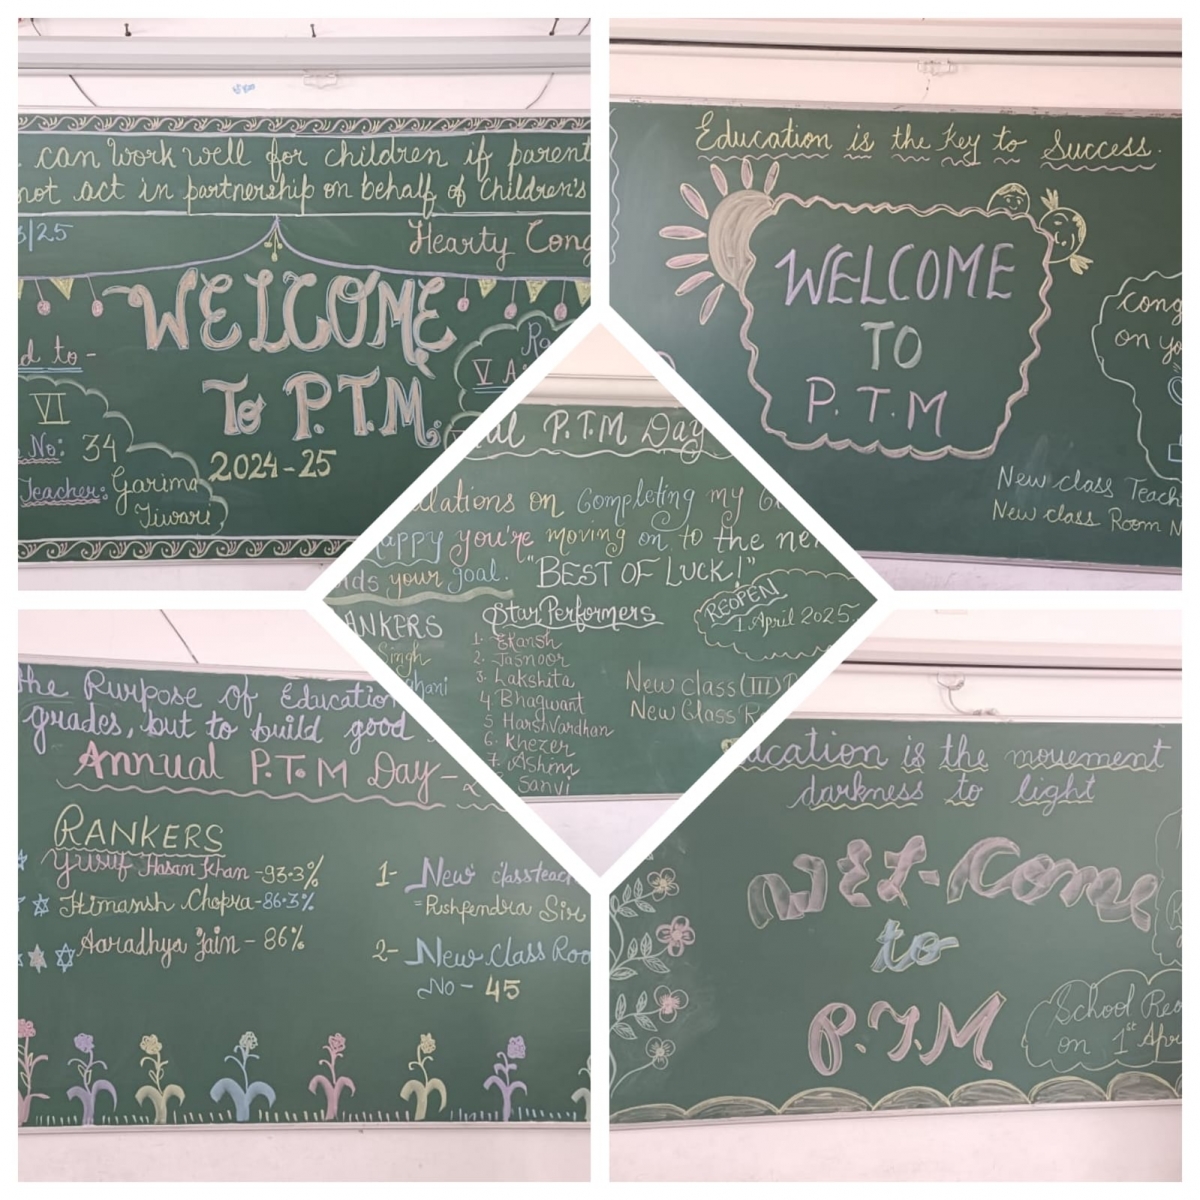 can work well for children if parent
not act in partnership on behalf of children's
3/25
Hearty Cong
WELCOME
To P.T.M.
2024-25
d to -
VI
No: 34
Teacher: Garima
Tiwari
V A
Education is the key to Success.
WELCOME
TO
P.T.M
Cong
on yo
New class Teach
New class Room N
al P.T.M Day
lations on Completing my G
appy you're moving on to the ne
ds your goal. "BEST OF LUCK!"
ANKERS
Singh
hani
Star Performers
1. Ekansh
2. Jasnoor
3. Lakshita
4. Bhagwant
5 Harshvardhan
6. Khezer
7. Ashim
Sanvi
REOPEN
1 April 2025.
New Class (III)
New Class R
the Purpose of Education
grades, but to build good
Annual P.T.M Day -
RANKERS
Yusuf Hasan Khan - 93.3%
Himansh Chopra - 86.3%
Aaradhya Jain - 86%
1- New classteach
= Pushpendra Sir
2- New Class Roo
No - 45
ucation is the movement
darkness to light
Wel-Come
to
P.T.M
School Reo
on 1st Apr